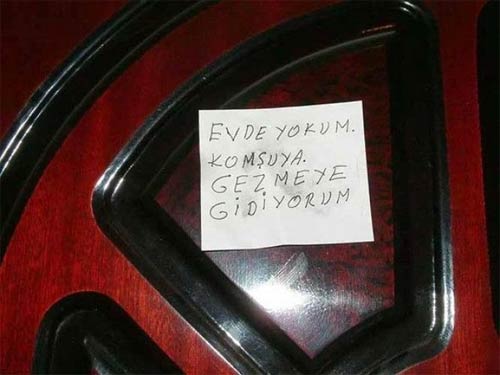 EVDE YOKUM.
KOMŞUYA.
GEZMEYE
GiDiYORUM